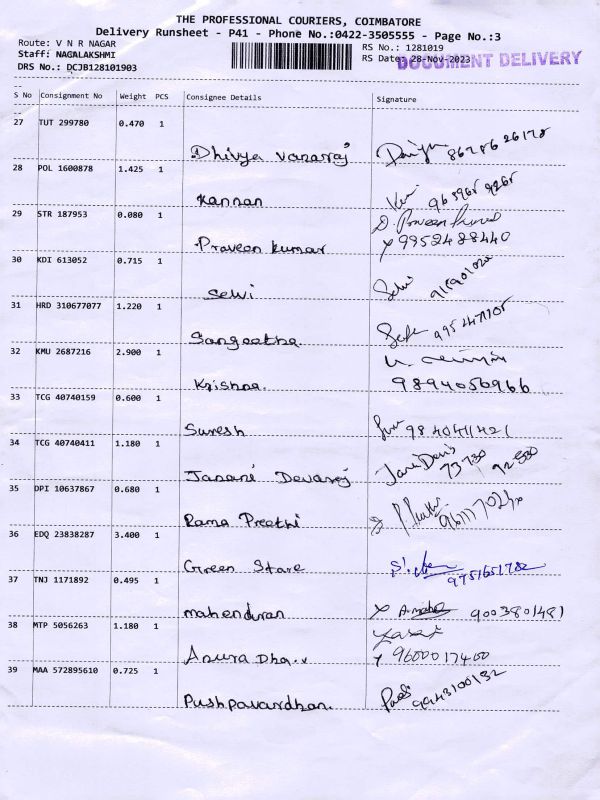 THE PROFESSIONAL COURIERS, COIMBATORE
Delivery Runsheet - P41 - Phone No.:0422-3505555 - Page No.:3
Route: V N R NAGAR
RS No.: 1281019
Staff: NAGALAKSHMI
RS Date: 28-Nov-2023
DOCUMENT DELIVERY
DRS No.: DCJB128101903
S No Consignment No Weight PCS Consignee Details Signature
27 TUT 299780 0.470 1
Dhivya Vanaraj 8678626178
28 POL 1600878 1.425 1
Kannan
29 STR 187953 0.080 1
Praveen Kumar 9952428440
30 KDI 613052 0.715 1
Selvi
31 HRD 310677077 1.220 1
Sangeetha.
32 KMU 2687216 2.900 1
Krishna. 9894050966
33 TCG 40740159 0.600 1
Suresh 9840411421
34 TCG 40740411 1.180 1
Janani Devaraj
35 DPI 10637867 0.680 1
Rama Preethi
36 EDQ 23838287 3.400 1
Green Store 9751651782
37 TNJ 1171892 0.495 1
mahendiran 9003801481
38 MTP 5056263 1.180 1
Anuradha 9600017400
39 MAA 572895610 0.725 1
Pushpavardhan. 9943100132